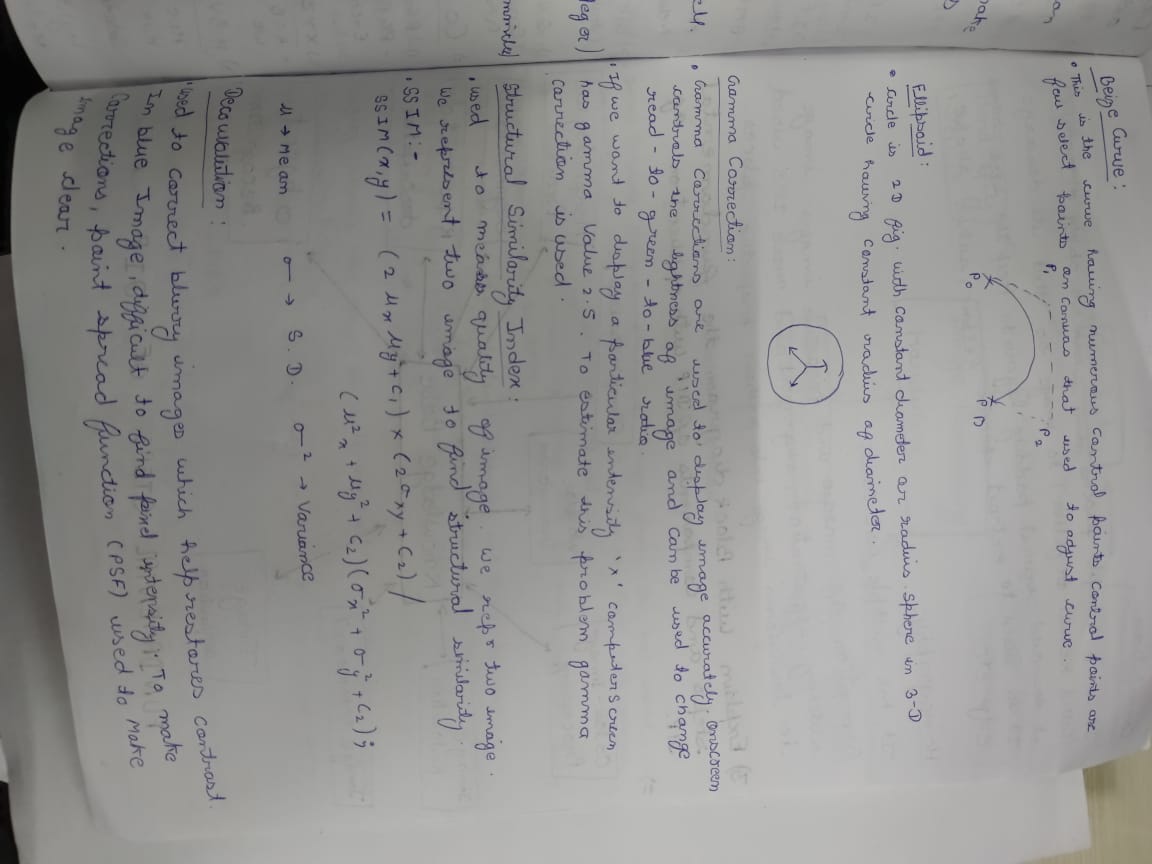 Beize Curve:
• This is the curve having numerous control points. control points are
few select points on canvas that used to adjust curve..
P1
P2
P0
P
D
Ellipsoid:
• circle is 2D fig. with constant diameter or radius. Sphere in 3-D
circle having constant radius of diameter..
Gamma Correction:
• Gamma Corrections are used to display image accurately. onscreen
controls the lightness of image and can be used to change
read - to - green - to - blue ratio.
• If we want to display a particular intensity 'x' computer screen
has gamma value 2.5. To estimate this problem gamma
correction is used.
Structural Similarity Index:
• used to quality of image. we repr two image.
We represent two image to find structural similarity.
• SSIM:-
SSIM(x,y) = (2 μx μy + c1) x (2σxy + c2) /
(μ²x + μy² + c2)(σx² + σy² + c2);
μ → Mean σ → S.D. σ² → Variance
:
• used to correct blurry images which help restores contrast.
In blue Image, difficult to find pixel intensity. To make
Corrections, point spread function (PSF) used to Make
image clear.
self.
eger)